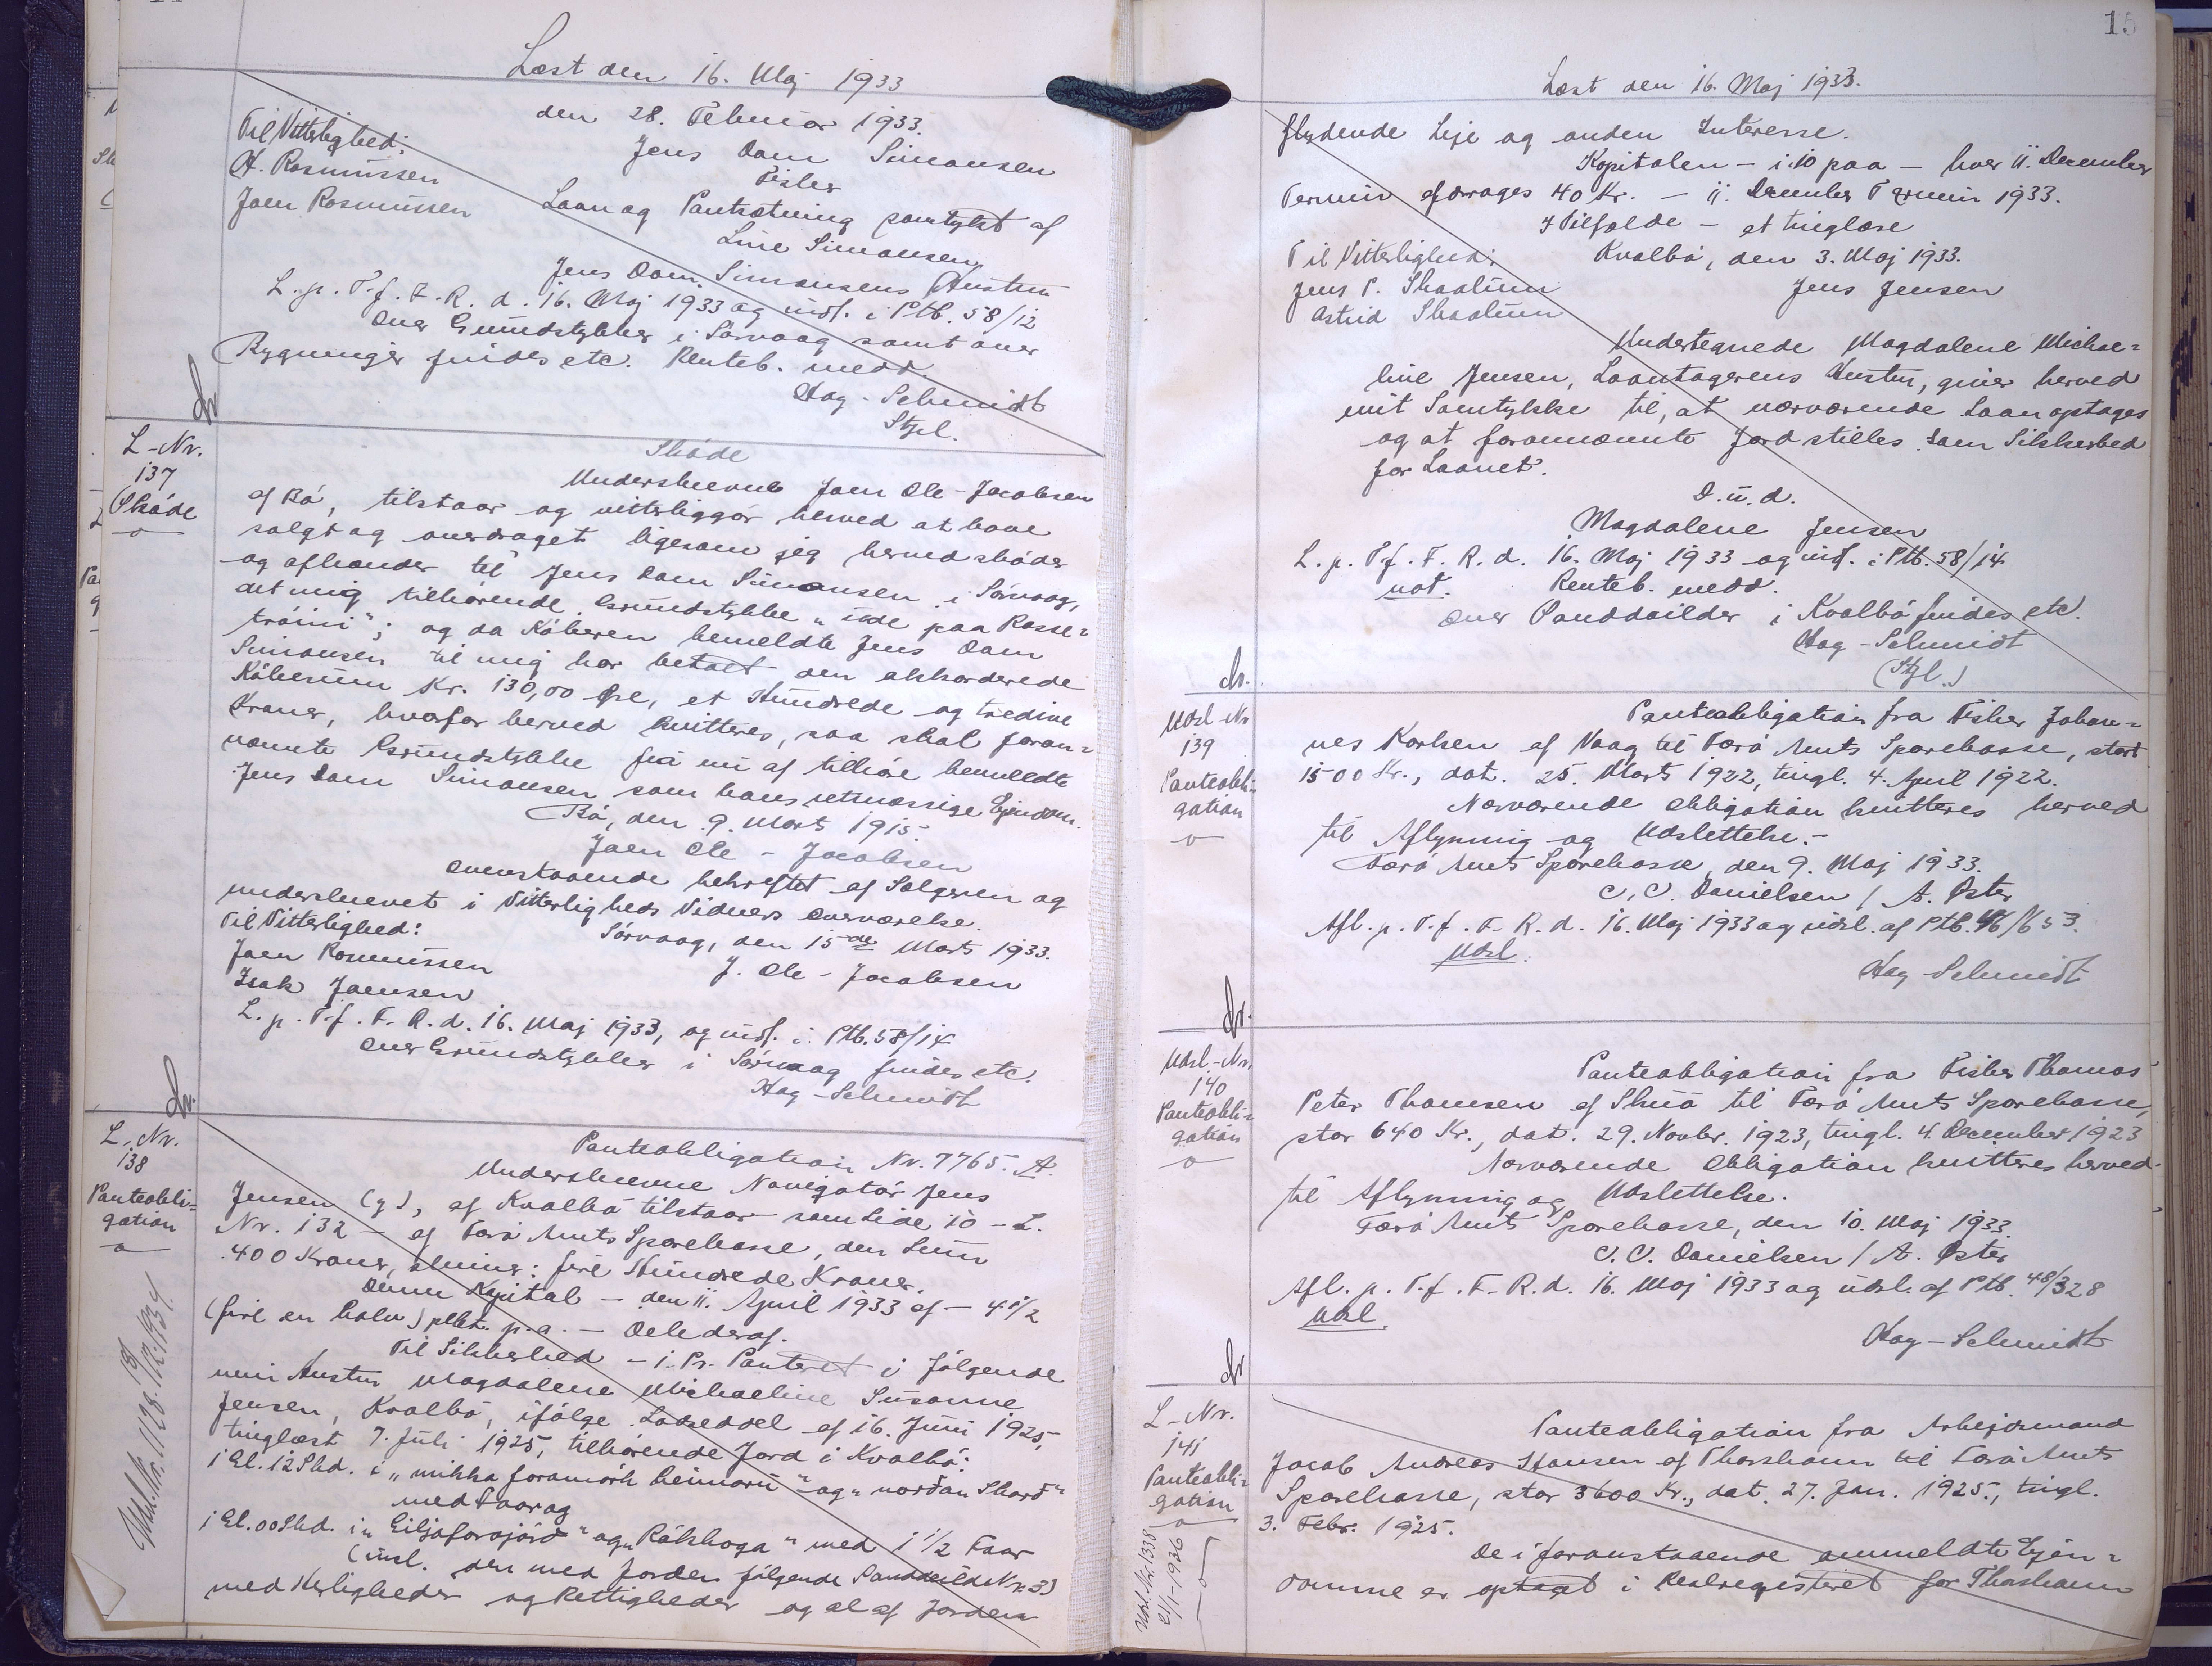 Læst den 16. Maj 1933
den 28. Februar 1933.
Til Vitterlighed:
Jens Dam Simonsen
H. Rasmussen
Fisker
Joen Rasmussen
Laan og Pantsætning samtykt af
Line Simonsen
Jens Dam Simonsens Hustru
L. p. T. f. F. R. d. 16. Maj 1933 og indf. i Ptb. 58/12
over Grundstykker i Sørvaag samt over
Bygninger findes etc. Renteb. medd.
Hag-Schmidt
Stfl.
L-Nr.
137
Skøde
Skøde
Underskrevne Joen Ole-Jacobsen
af Bø, tilstaar og vitterliggør herved at have
solgt og overdraget ligesom jeg herved skøder
og afhænder til Jens Dam Simonsen i Sørvaag,
det mig tilhørende Grundstykke "inde paa Rosse=
trøini"; og da Køberen bemeldte Jens Dam
Simonsen til mig har betalt den akkorderede
Købesum Kr. 130,00 Øre, et Hundrede og tredive
Kroner, hvorfor herved kvitteres, saa skal foran=
nævnte Grundstykke fra nu af tilhøre bemeldte
Jens Dam Simonsen som hans retmæssige Ejendom.
Bø, den 9. Marts 1915
Joen Ole-Jacobsen
Ovenstaaende bekræftet af Sælgeren og
underskrevet i Vitterligheds Vidners Overværelse.
Til Vitterlighed:
Sørvaag, den 15de Marts 1933.
Joen Rasmussen
J. Ole-Jacobsen
Isak Joensen
L. p. T. f. F. R. d. 16. Maj 1933, og indf. i Ptb. 58/14
over Grundstykker i Sørvaag findes etc.
Hag-Schmidt
L-Nr.
138
Panteobli=
gation
Panteobligation Nr. 7765. A.
Underskrevne Navigatør Jens
Jensen (g), af Kvalbø tilstaar - som Lide 10 - L.
Nr. 132 - af Færø Amts Sparekasse, den Sum
400 Kroner, skriver: fire Hundrede Kroner.
Denne Kapital - den 11. April 1933 af - 4 1/2
(fire en halv) pCt. p. a. - Deleder af.
Til Sikkerhed - i. Pr. Panteret i følgende
min Hustru Magdalene Michaeline Susanne
Jensen, Kvalbø, ifølge Lodseddel af 16. Juni 1925,
tinglæst 7. Juli 1925, tilhørende Jord i Kvalbø:
1 Gl. 12 Skd. i "mikka foramørk heimaru" og "nordan Skard"
med Faar og
1 Gl. 00 Skd. i "Giljaforsjørd" og "Rálshoga" med 1 1/2 Faar
(incl. den med Jorden følgende Panddeild Nr. 3)
med Herligheder og Rettigheder og al af Jorden
15
Læst den 16. Maj 1933.
flydende Leje og anden Interesse.
Kapitalen - i 10 paa - hver 11. December
Termin afdrages 40 Kr. - 11. December Termin 1933.
I Tilfælde - at tinglæse
Til Vitterlighed:
Kvalbø, den 3. Maj 1933.
Jens P. Skaalum
Jens Jensen
Astrid Skaalum
Undertegnede Magdalene Michae=
line Jensen, Laantagerens Hustru, giver herved
mit Samtykke til, at nærværende Laan optages
og at forannævnte Jord stilles som Sikkerhed
for Laanet.
D. u. d.
Magdalene Jensen
L. p. T. f. F. R. d. 16. Maj 1933 og indf. i Ptb. 58/14
not. Renteb. medd.
over Panddeilder i Kvalbø findes etc.
Hag-Schmidt
(Stfl.)
Udsl-Nr
139
Panteobli=
gation
Panteobligation fra Fisker Johan=
nes Karlsen af Vaag til Færø Amts Sparekasse, stort
1500 Kr., dat. 25. Marts 1922, tingl. 4. April 1922.
Nærværende Obligation kvitteres herved
til Aflysning og Udslettelse.-
Færø Amts Sparekasse, den 9. Maj 1933.
C. C. Danielsen / A. Øster
Afl. p. T. f. F. R. d. 16. Maj 1933 og udsl. af Ptb. 46/653.
Udsl.
Hag-Schmidt
Udsl-Nr.
140
Panteobli=
gation
Panteobligation fra Fisker Thomas
Peter Thomsen af Skuø til Færø Amts Sparekasse,
stor 640 Kr., dat. 29. Novbr. 1923, tingl. 4. December 1923
Nærværende Obligation kvitteres herved
til Aflysning og Udslettelse.
Færø Amts Sparekasse, den 10. Maj 1933.
C. C. Danielsen / A. Øster
Afl. p. T. f. F. R. d. 16. Maj 1933 og udsl. af Ptb. 48/328
Udsl.
Hag-Schmidt
L-Nr.
141
Panteobli=
gation
Udsl. Nr. 1338
21/1-1936
Panteobligation fra Arbejdsmand
Jacob Andreas Hansen af Thorshavn til Færø Amts
Sparekasse, stor 3600 Kr., dat. 27. Jan. 1925., tingl.
3. Febr. 1925.
De i foranstaaende ommeldte Ejen=
domme er optaget i Realregisteret for Thorshavn